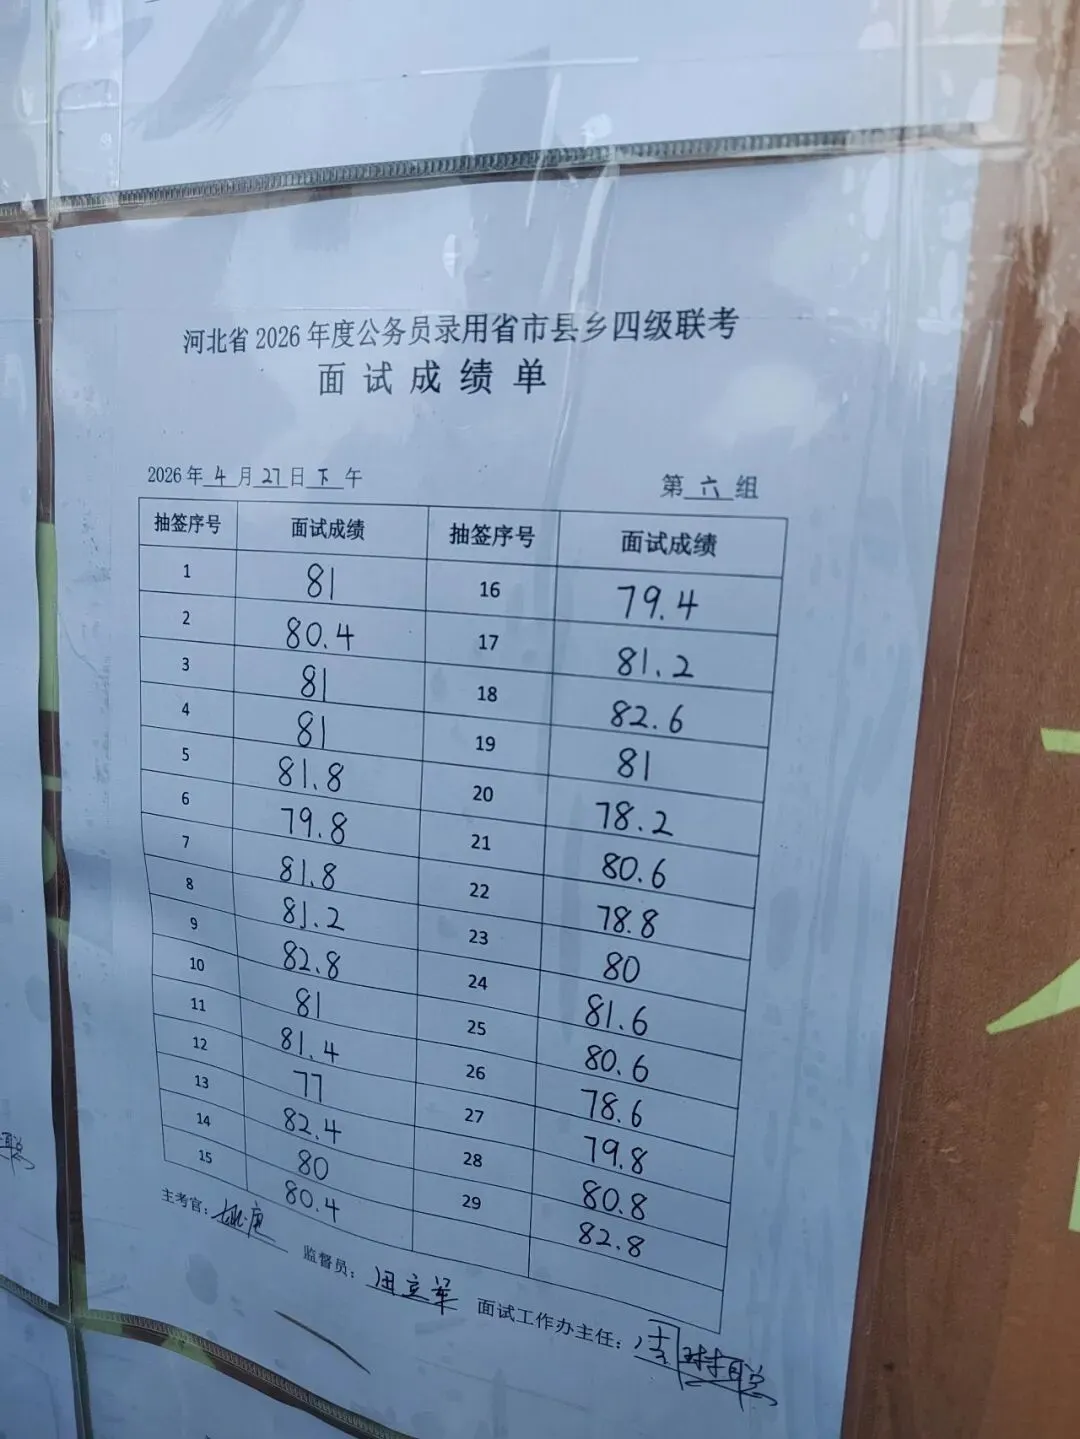 河北省2026年度公务员录用省市县乡四级联考
面试成绩单
2026年4月27日下午 第六组
抽签序号 面试成绩 抽签序号 面试成绩
1 81 16 79.4
2 80.4 17 81.2
3 81 18 82.6
4 81 19 81
5 81.8 20 78.2
6 79.8 21 80.6
7 81.8 22 78.8
8 81.2 23 80
9 82.8 24 81.6
10 81 25 80.6
11 81.4 26 78.6
12 77 27 79.8
13 82.4 28 80.8
14 80 29 82.8
15 80.4
主考官: 监督员: 面试工作办主任: